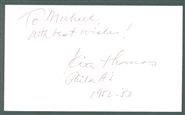 To Michael,
with best wishes!
Kite Thomas
Phila A's
1952-53